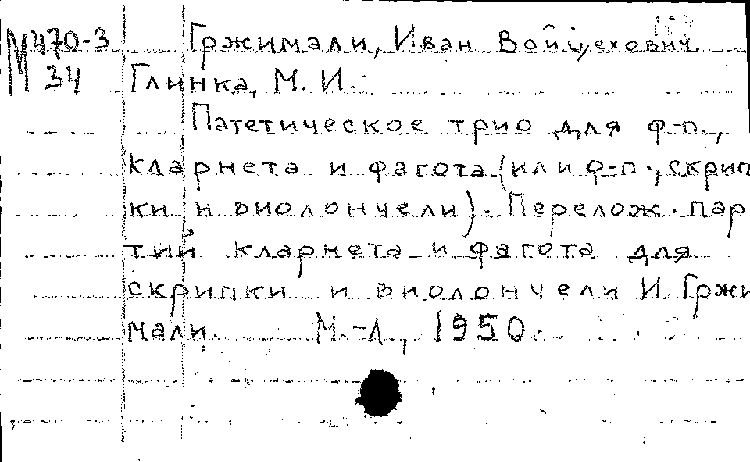 М470-3 Гржимали, Иван Войцехович
34 Глинка, М. И.
Патетическое трио для ф-п.,
кларнета и фагота (или ф-п., скрип
ки и виолончели). Перелож. пар
тий кларнета и фагота для
скрипки и виолончели И. Гржи
мали. М.-Л., 1950.